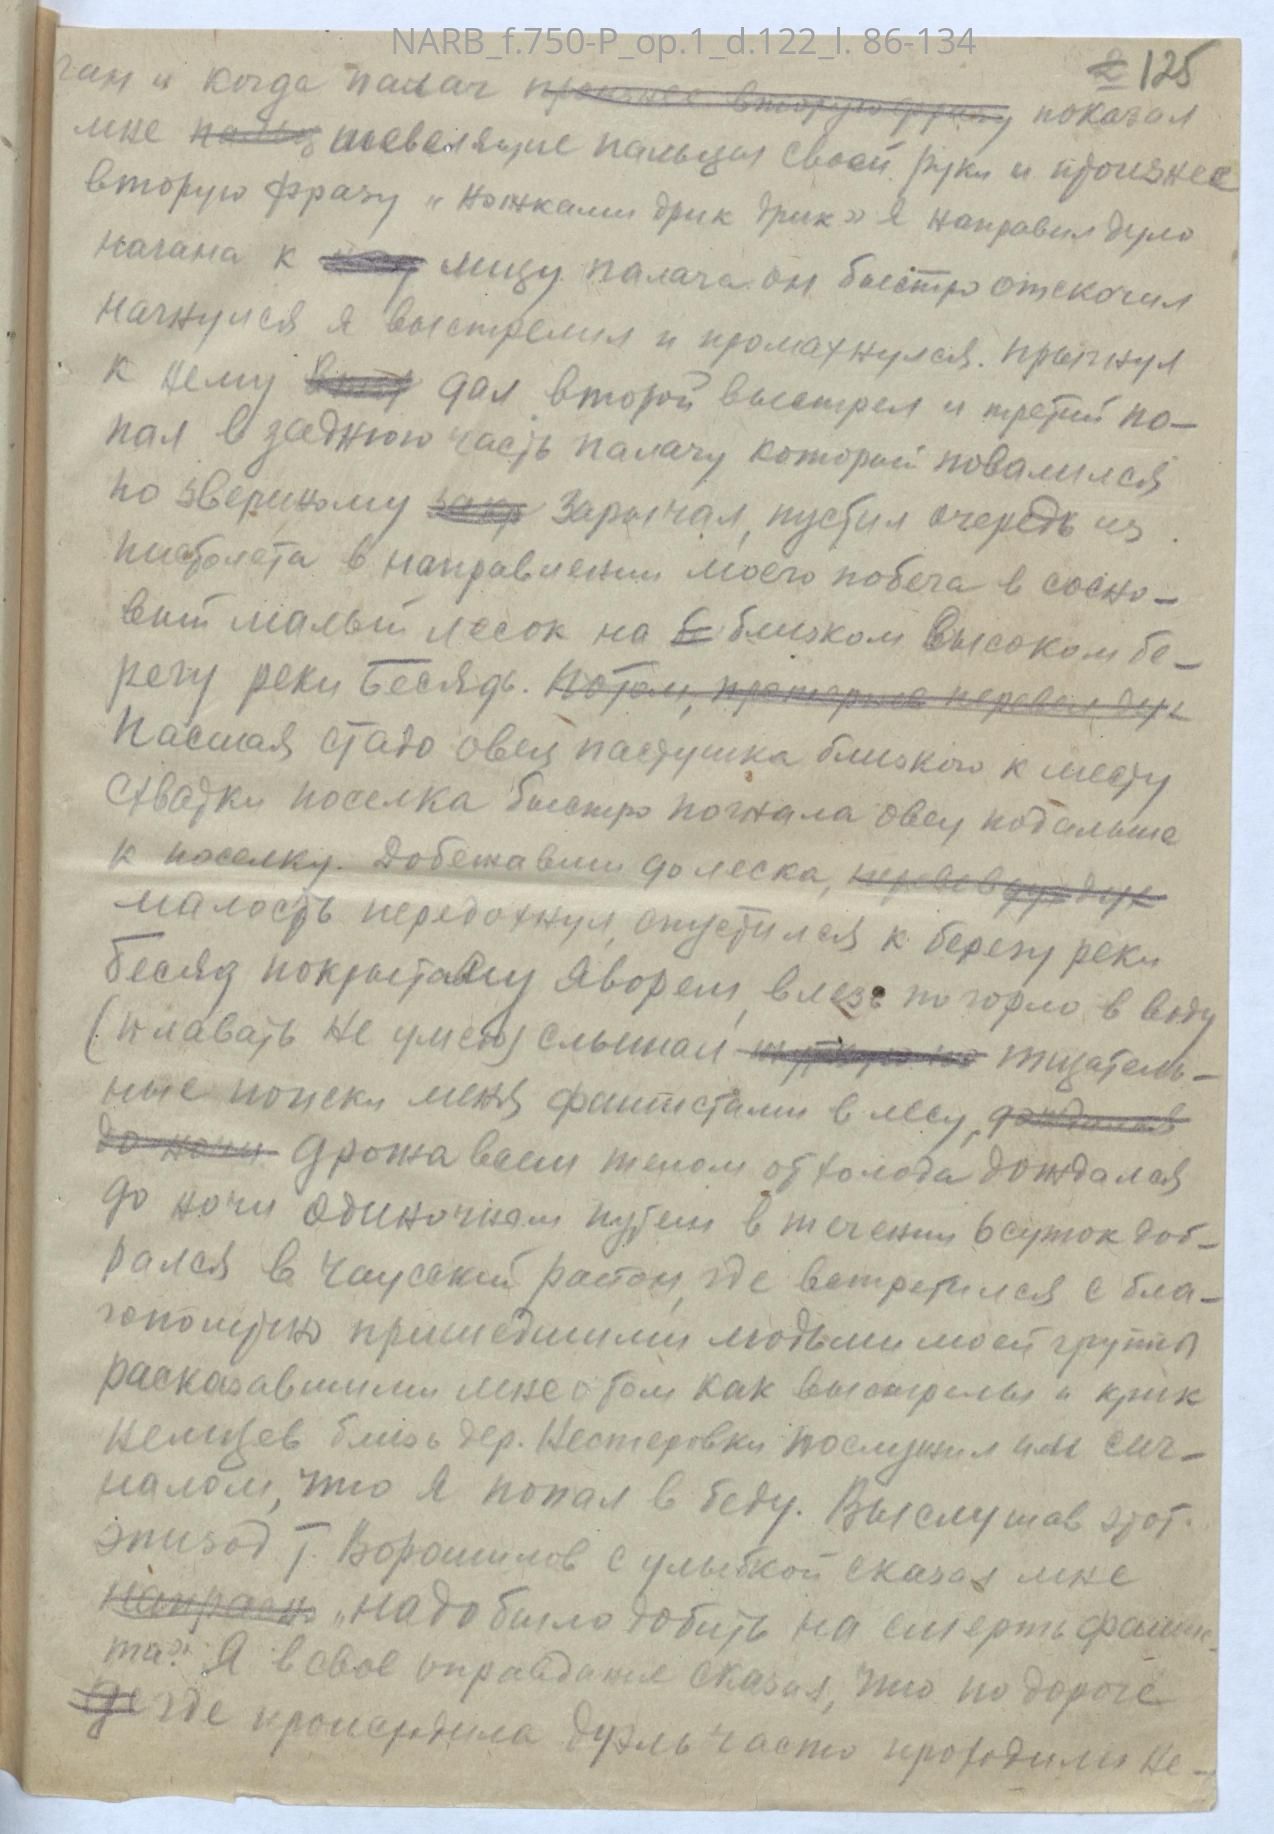 NARB_f.750-P_op.1_d.122_l. 86-134
2 125
ган и когда палач произнес вторую фразу показал
мне пальц шевелящие пальцы своей руки и произнес
вторую фразу "ножками дрик дрик" я направил дуло
нагана к лицу палача он быстро отскочил
нагнулся я выстрелил и промахнулся. Прыгнул
к нему дал второй выстрел и третий по-
пал в заднюю часть палачу который повалился
по звериному закр зарычал, пустил очередь из
пистолета в направлении моего побега в сосно-
вый малый лесок на близком высоком бе-
регу реки Бесядь. Потом, перевел дух
Пасшая стадо овец пастушка близкого к месту
схватки поселка быстро погнала овец подальше
к поселку. Добежавши до леска, перевев дух
малость передохнул, опустился к берегу реки
Бесяд покрытому явором, влезь по горло в воду
(плавать не умею) слышал тщатель-
ные поиски меня фашистами в лесу, дождался
до ночи дрожа всем телом от холода дождался
до ночи одиночным путем в течении 6 суток доб-
рался в Чаусский район, где встретился с бла-
гополучно пришедшими людьми моей группы
расказавшими мне о том как выстрелы и крик
немцев близь дер. Нестеровки послужил им сиг-
налом, что я попал в беду. Выслушав этот
эпизод Т. Ворошилов с улыбкой сказал мне
напрасно "надо было добить на смерть фашис-
та". Я в свое оправдание сказал, что по дороге
где где происходила дуэль часто проходили не-